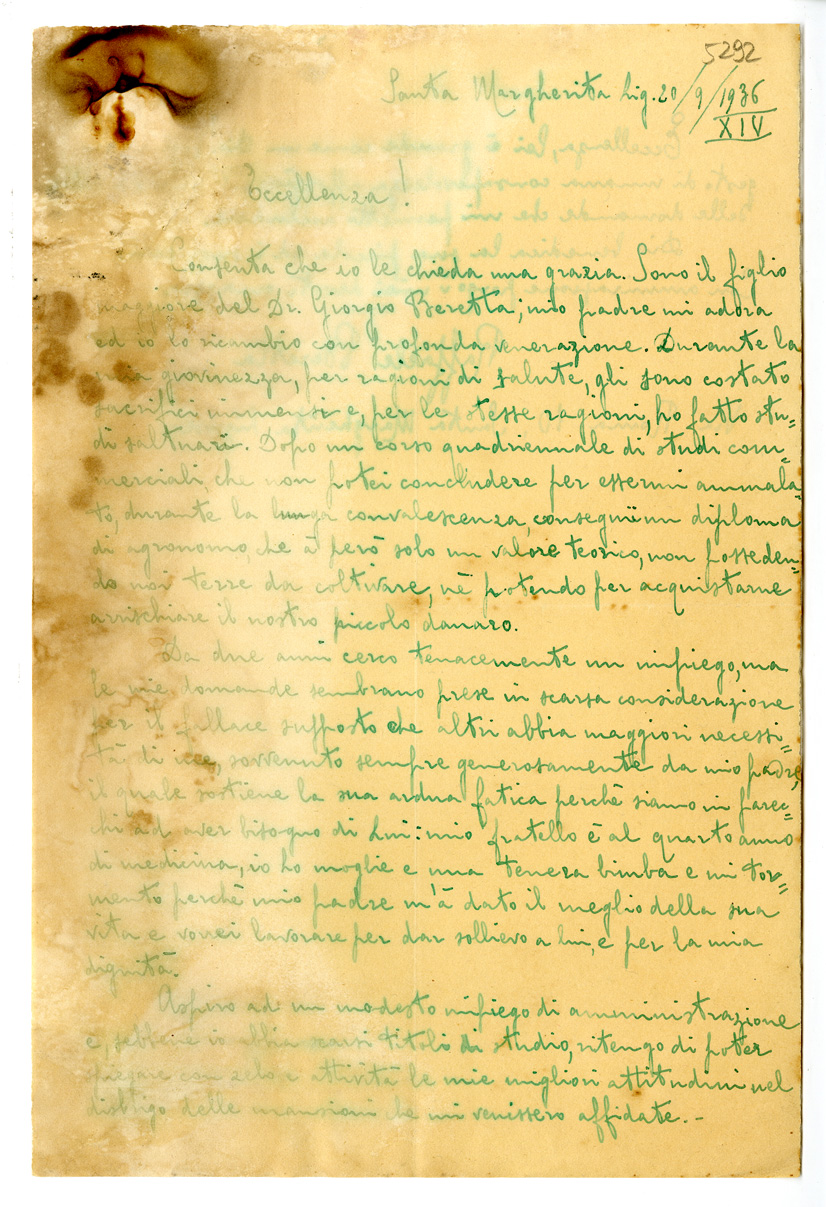 5292
Santa Margherita Lig. 20/9/1936
XIV
Eccellenza!
Consenta che io le chieda una grazia. Sono il figlio
maggiore del Dr. Giorgio Beretta; mio padre mi adora
ed io lo ricambio con profonda venerazione. Durante la
mia giovinezza, per ragioni di salute, gli sono costato
sacrifici immensi e, per le stesse ragioni, ho fatto stu=
di saltuarî. Dopo un corso quadriennale di studi com=
merciali, che non potei concludere per essermi ammala=
to, durante la lunga convalescenza, conseguii un diploma
di agronomo, che à però solo un valore teorico, non posseden=
do noi terre da coltivare, nè potendo per acquistarne
arrischiare il nostro piccolo danaro.
Da due anni cerco tenacemente un impiego, ma
le mie domande sembrano prese in scarsa considerazione
per il fallace supposto che altri abbia maggiori necessi=
tà di me, sovvenuto sempre generosamente da mio padre,
il quale sostiene la sua ardua fatica perchè siamo in parec=
chi ad aver bisogno di Lui: mio fratello è al quarto anno
di medicina, io ho moglie e una tenera bimba e mi tor=
mento perchè mio padre m'à dato il meglio della sua
vita e vorrei lavorare per dar sollievo a lui, e per la mia
dignità.
Aspiro ad un modesto impiego di amministrazione
e, sebbene io abbia scarsi titoli di studio, ritengo di poter
spiegare con zelo e attività le mie migliori attitudini nel
disbrigo delle mansioni che mi venissero affidate. -